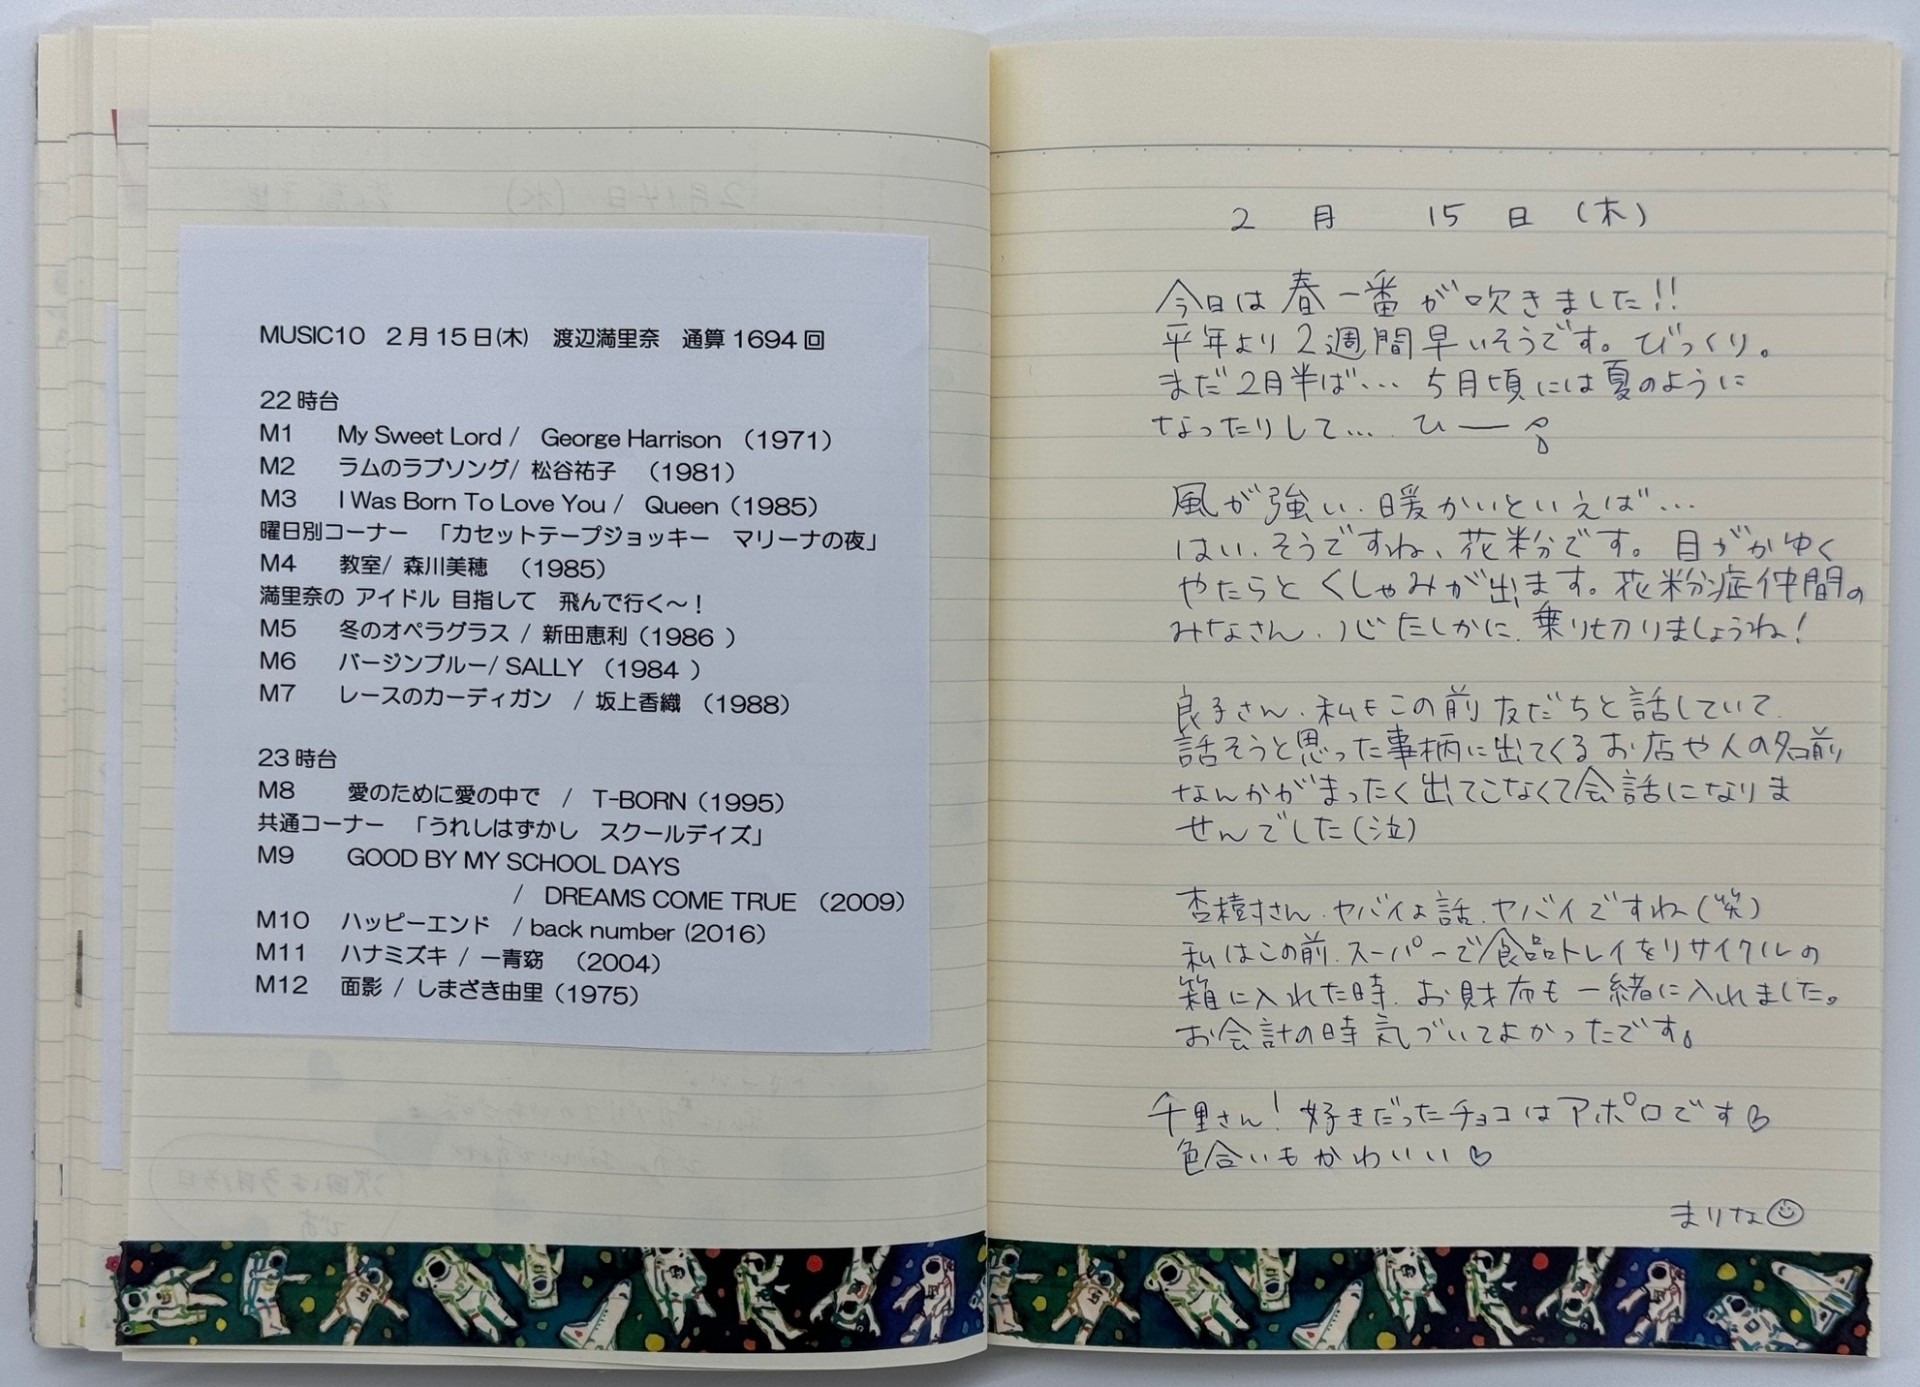 MUSIC10　2月15日(木)　渡辺満里奈　通算1694回
22時台
M1　My Sweet Lord /　George Harrison （1971）
M2　ラムのラブソング/ 松谷祐子　（1981）
M3　I Was Born To Love You /　Queen（1985）
曜日別コーナー　「カセットテープジョッキー　マリーナの夜」
M4　教室/ 森川美穂　（1985）
満里奈の アイドル 目指して　飛んで行く～！
M5　冬のオペラグラス / 新田恵利（1986 ）
M6　バージンブルー/ SALLY （1984 ）
M7　レースのカーディガン　/ 坂上香織 （1988）
23時台
M8　愛のために愛の中で　/　T-BORN（1995）
共通コーナー　「うれしはずかし　スクールデイズ」
M9　GOOD BY MY SCHOOL DAYS
/　DREAMS COME TRUE （2009）
M10　ハッピーエンド　/ back number (2016)
M11　ハナミズキ / 一青窈　（2004）
M12　面影 / しまざき由里（1975）
2月 15日 (木)
今日は春一番が吹きました!!
平年より2週間早いそうです。びっくり。
まだ2月半ば… 5月頃には夏のように
なったりして… ひー
風が強い、暖かいといえば…
はい、そうですね、花粉です。目がかゆく
やたらとくしゃみが出ます。花粉症仲間の
みなさん、心たしかに、乗り切りましょうね!
良子さん、私もこの前友だちと話していて、
話そうと思った事柄に出てくるお店や人の名前
なんかがまったく出てこなくて会話になりま
せんでした(泣)
杏樹さん、ヤバイよ話、ヤバイですね(笑)
私はこの前、スーパーで食品トレイをリサイクルの
箱に入れた時、お財布も一緒に入れました。
お会計の時気づいてよかったです。
千里さん! 好きだったチョコはアポロです♡
色合いもかわいい♡
まりな☺